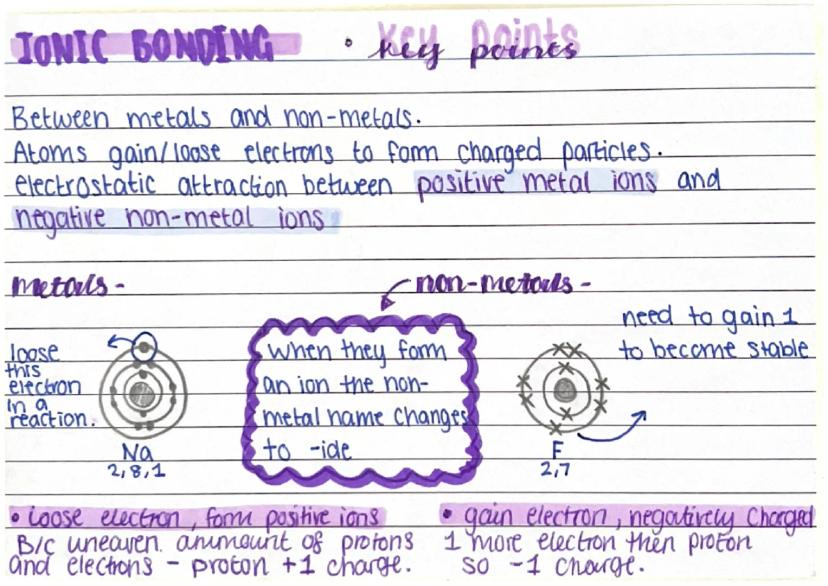 IONIC BONDING • key points
Between metals and non-metals.
Atoms gain/loose electrons to form charged particles.
electrostatic attraction between positive metal ions and
negative non-metal ions
metals -
non-metals -
loose
this
electron
in a
reaction.
Na
2,8,1
when they form
an ion the non-
metal name changes
to -ide
need to gain 1
to become stable
F
2,7
• loose electron, form positive ions
B/c uneaven. anmount of protons
and electrons - proton +1 charge.
• gain electron, negatively charged
1 more electron then proton
so -1 charge.